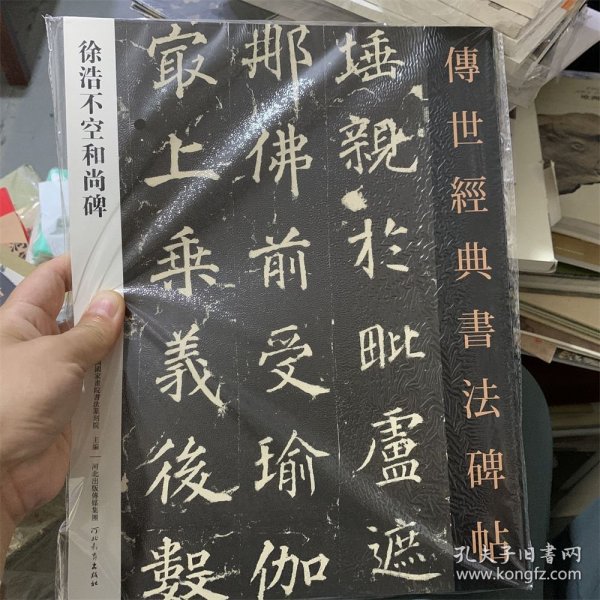 傳世經典書法碑帖
埵親於毗盧遮
那佛前受瑜伽
最上乘義後數
徐浩不空和尚碑
國家畫院書法篆刻院 主編
河北出版傳媒集團
河北教育出版社
孔夫子旧书网
www.kongfz.com